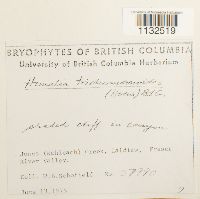 1132519
BRYOPHYTES OF BRITISH COLUMBIA
University of British Columbia Herbarium
Homalia trichomanoides
(Hedw.) B.S.G.
shaded cliff in canyon
Jones Creek, Laidlaw, Fraser
River Valley.
Coll. W.B. Schofield No.
June 13, 1965